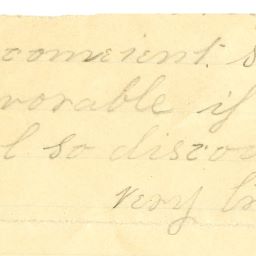 convenient. s
vorable if
l so discou
very li